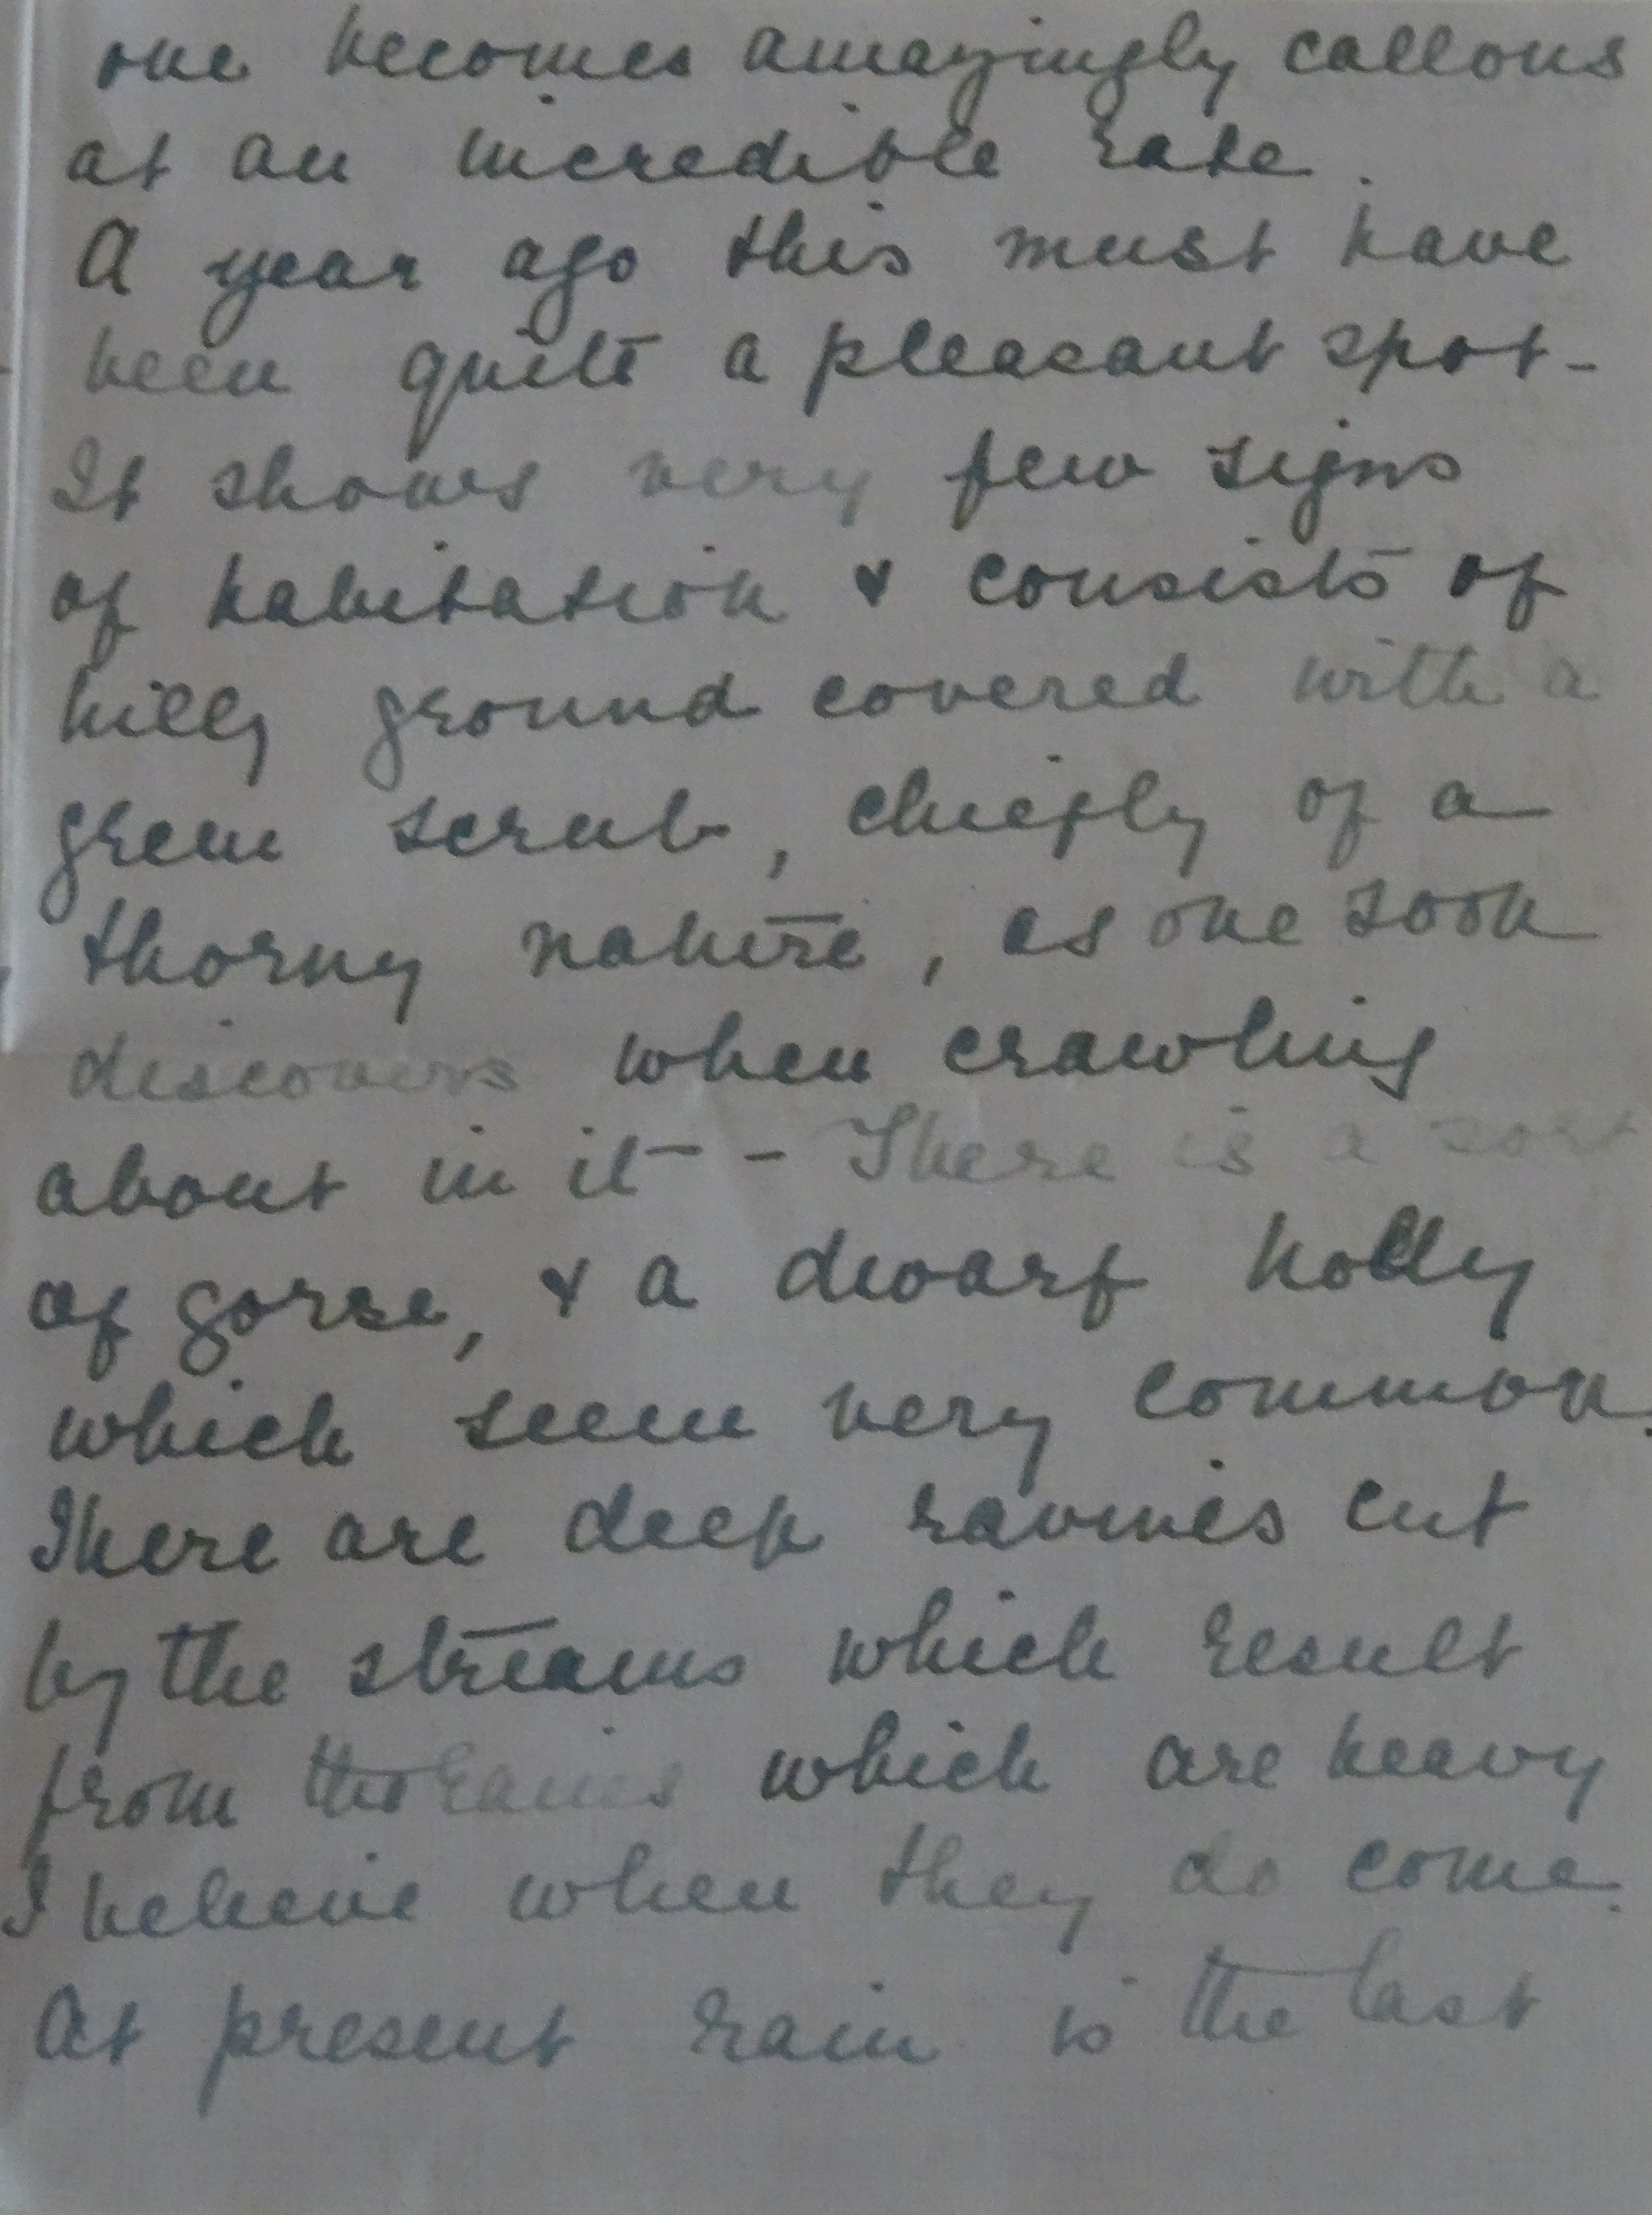 one becomes amazingly callous
at an incredible rate.
A year ago this must have
been quite a pleasant spot -
It shows very few signs
of habitation & consists of
hilly ground covered with a
green scrub, chiefly of a
thorny nature, as one soon
discovers when crawling
about in it - There is a sort
of gorse, & a dwarf holly
which seem very common.
There are deep ravines cut
by the streams which result
from the rains which are heavy
I believe when they do come.
At present rain is the last